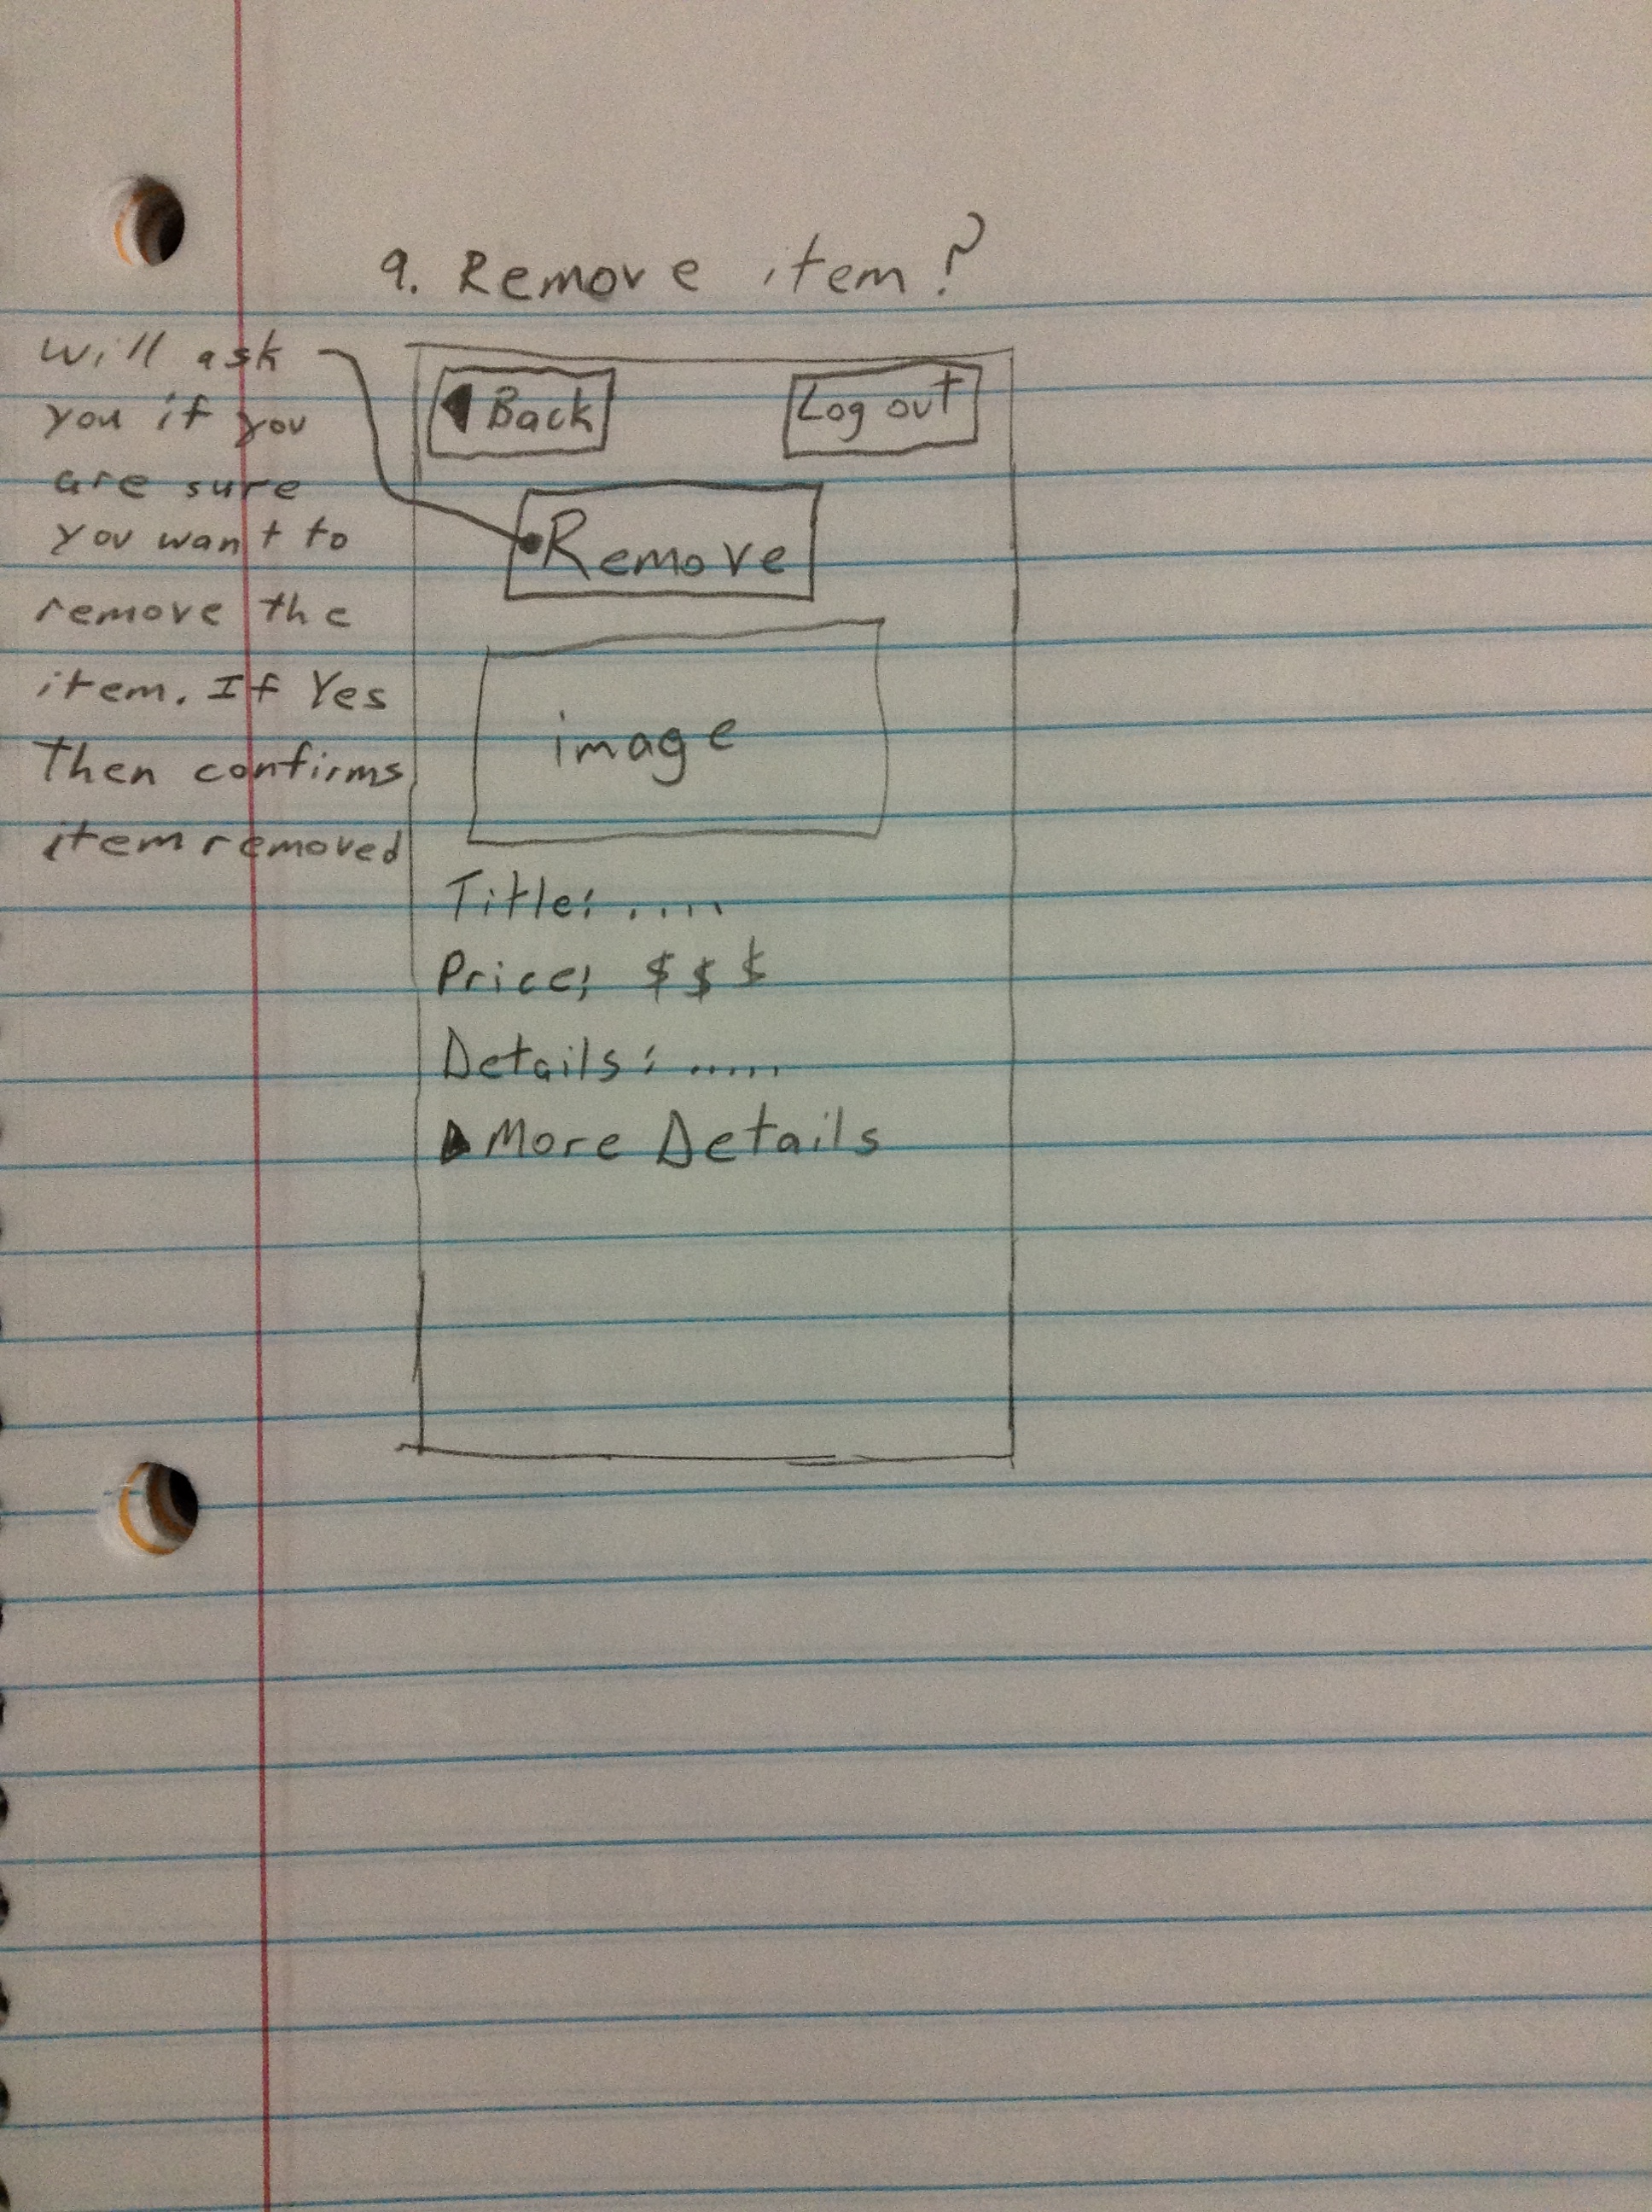 9. Remove item?
will ask
you if you
are sure
you want to
remove the
item. If Yes
Then confirms
item removed
◀ Back
Log out
Remove
image
Title: ....
Price: $ $ $
Details: .....
▶ More Details